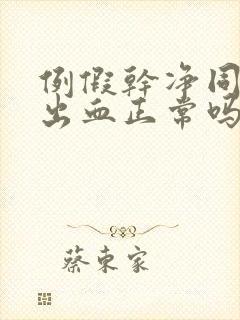 例假幹净同
出血正常吗
蔡東家